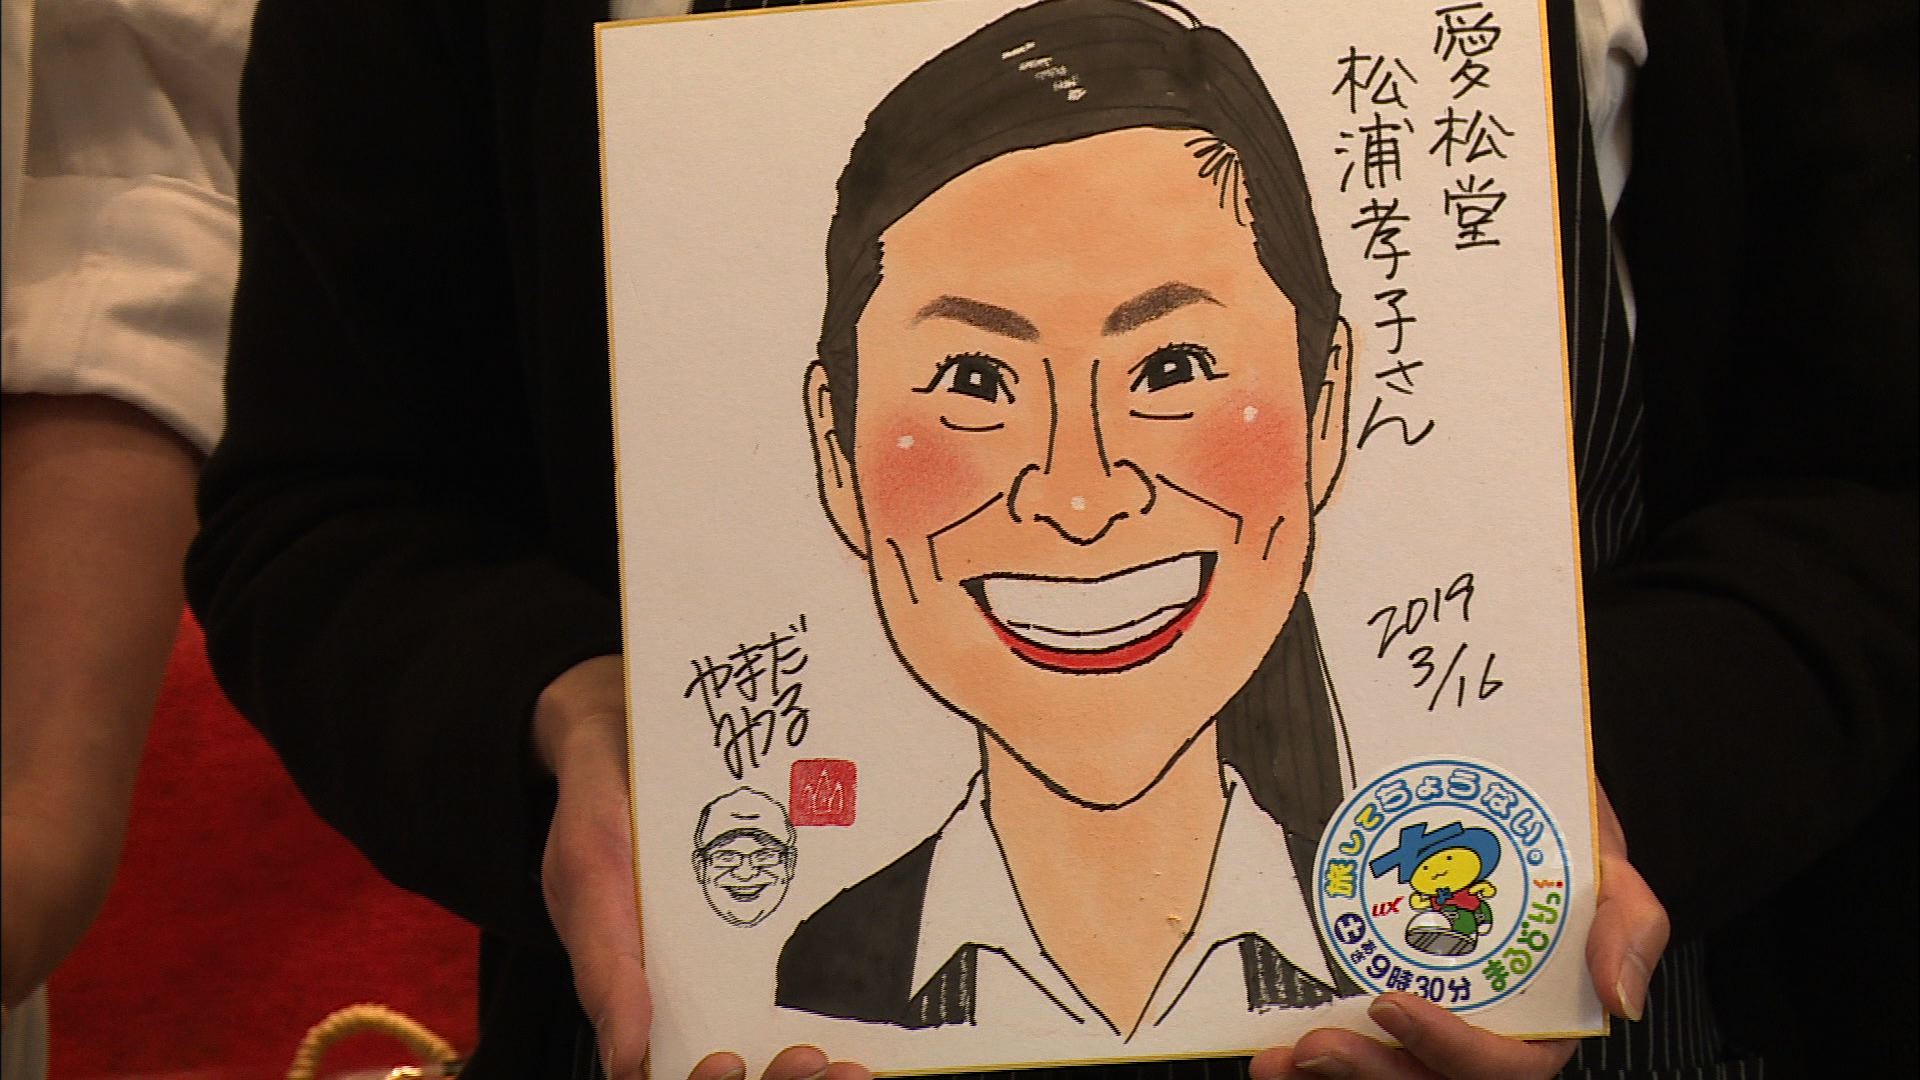 愛松堂
松浦孝子さん
2019
3/16
やまだ
みつる
旅してちょうない。
まるどりっ!
UX
土 あさ 9時30分